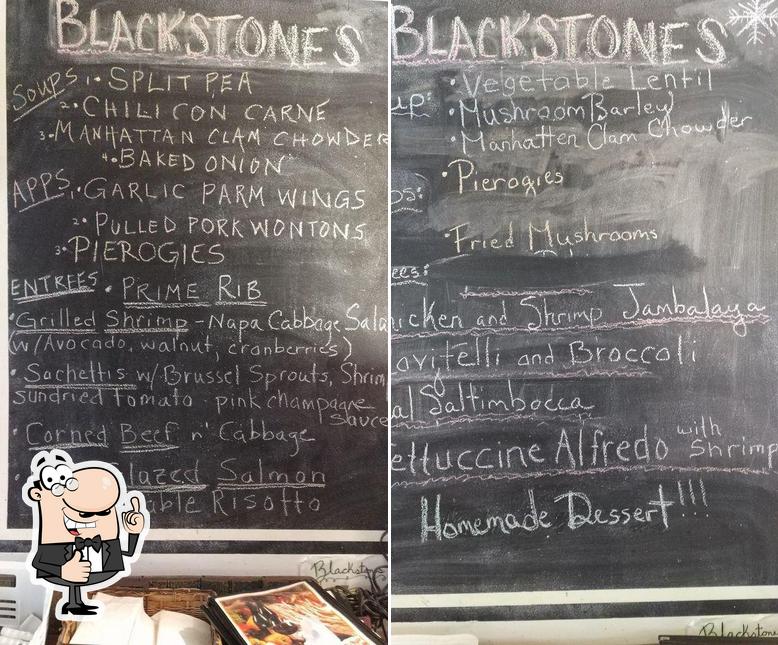 BLACKSTONES
SOUPS 1. SPLIT PEA
2. CHILI CON CARNE
3. MANHATTAN CLAM CHOWDER
4. BAKED ONION
APPS 1. GARLIC PARM WINGS
2. PULLED PORK WONTONS
3. PIEROGIES
ENTREES • PRIME RIB
• Grilled Shrimp - Napa Cabbage Sala
(w/Avocado, walnut, cranberries)
• Sachettis w/Brussel Sprouts, Shrim
sundried tomato - pink champagne
sauce
• Corned Beef n' Cabbage
lazed Salmon
able Risotto
Blackstones
BLACKSTONES
• Vegetable Lentil
up: • Mushroom Barley
• Manhatten Clam Chowder
• Pierogies
ps:
• Fried Mushrooms
ees:
icken and Shrimp Jambalaya
avitelli and Broccoli
al Saltimbocca
ettuccine Alfredo with Shrimp
Homemade Dessert!!!
Blackstone